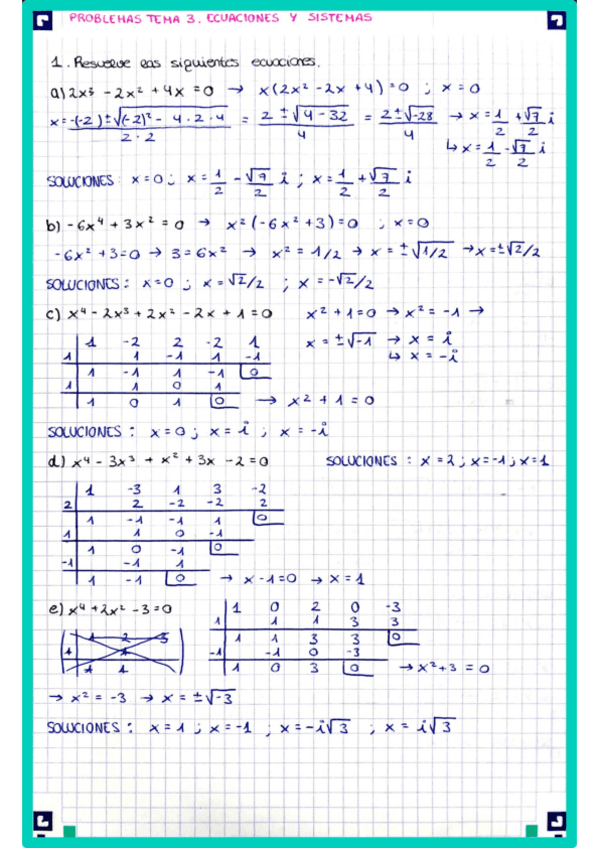 PROBLEMAS TEMA 3. ECUACIONES Y SISTEMAS
1. Resuelve las siguientes ecuaciones.
a) 2x³ - 2x² + 4x = 0 → x(2x² - 2x + 4) = 0 ; x = 0
x = -(-2) ± √(-2)² - 4·2·4 / 2·2 = 2 ± √4 - 32 / 4 = 2 ± √-28 / 4 → x = 1/2 + √7/2 i
↳ x = 1/2 - √7/2 i
SOLUCIONES: x = 0 ; x = 1/2 - √7/2 i ; x = 1/2 + √7/2 i
b) -6x⁴ + 3x² = 0 → x²(-6x² + 3) = 0 ; x = 0
-6x² + 3 = 0 → 3 = 6x² → x² = 1/2 → x = ±√1/2 → x = ±√2/2
SOLUCIONES: x = 0 ; x = √2/2 ; x = -√2/2
c) x⁴ - 2x³ + 2x² - 2x + 1 = 0 x² + 1 = 0 → x² = -1 →
x = ±√-1 → x = i
↳ x = -i
1 -2 2 -2 1
1 1 -1 1 -1
1 -1 1 -1 0
1 1 0 1
1 0 1 0 → x² + 1 = 0
SOLUCIONES: x = 0 ; x = i ; x = -i
d) x⁴ - 3x³ + x² + 3x - 2 = 0 SOLUCIONES: x = 2 ; x = -1 ; x = 1
1 -3 1 3 -2
2 2 -2 -2 2
1 -1 -1 1 0
1 1 0 -1
1 0 -1 0
-1 -1 1
1 -1 0 → x - 1 = 0 → x = 1
e) x⁴ + 2x² - 3 = 0
1 2 -3
1 1
1 1
1 0 2 0 -3
1 1 1 3 3
1 1 3 3 0
-1 -1 0 -3
1 0 3 0 → x² + 3 = 0
→ x² = -3 → x = ±√-3
SOLUCIONES: x = 1 ; x = -1 ; x = -i√3 ; x = i√3